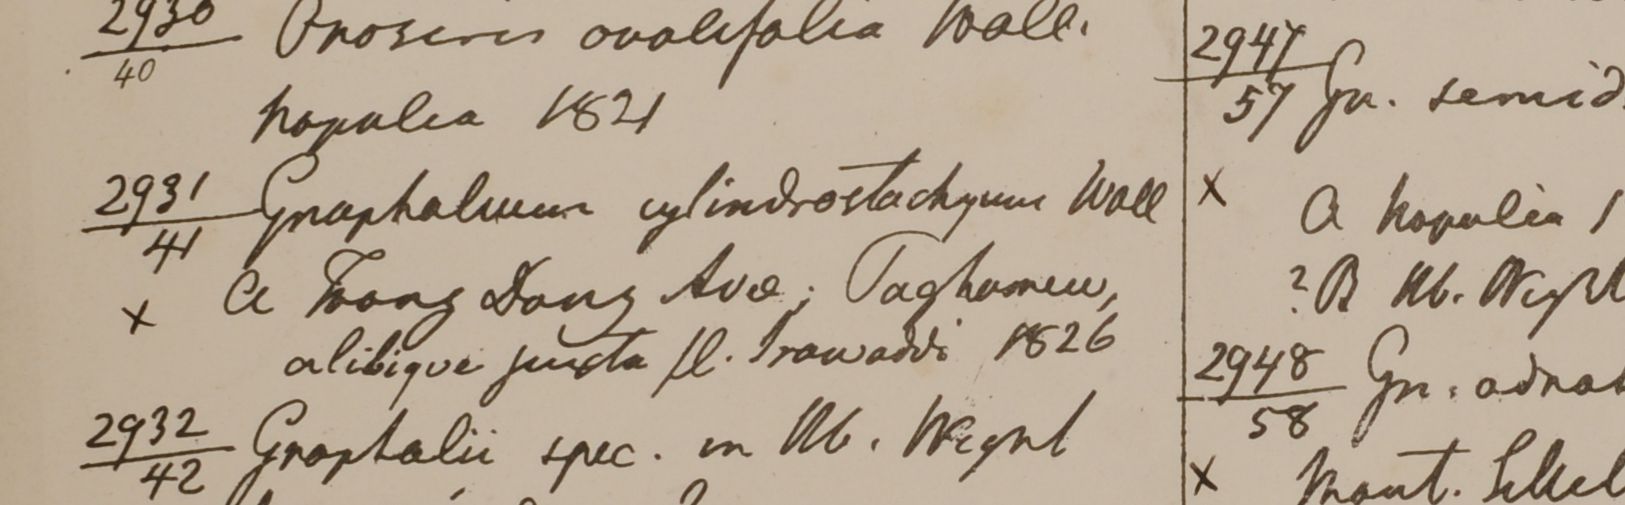 2930
40 Onoseris ovalifolia Wall.
Napalia 1821
2931
41 Gnaphalium cylindrostachyum Wall
x a Toong Dong Ava; Taghamew,
alibique juxta fl. Irawaddi 1826
2932
42 Gnaphalii spec. in Hb. Wight
2947
57 Gn. semid
x a Napalia 1
? B Hb. Wight
2948
58 Gn. adnat
x Mont.